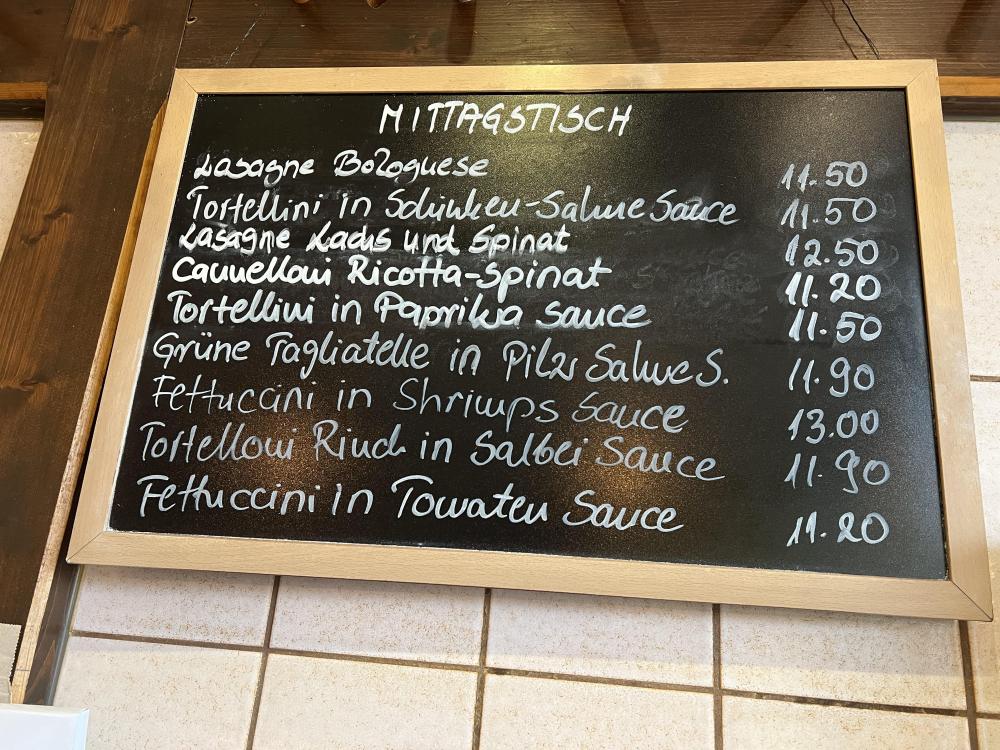 MITTAGSTISCH
Lasagne Bolognese 11.50
Tortellini in Schinken-Sahne Sauce 11.50
Lasagne Lachs und Spinat 12.50
Cannelloni Ricotta-Spinat 11.20
Tortellini in Paprika Sauce 11.50
Grüne Tagliatelle in Pilz Sahne S. 11.90
Fettuccini in Shrimps Sauce 13.00
Tortelloni Rind in Salbei Sauce 11.90
Fettuccini in Tomaten Sauce 11.20